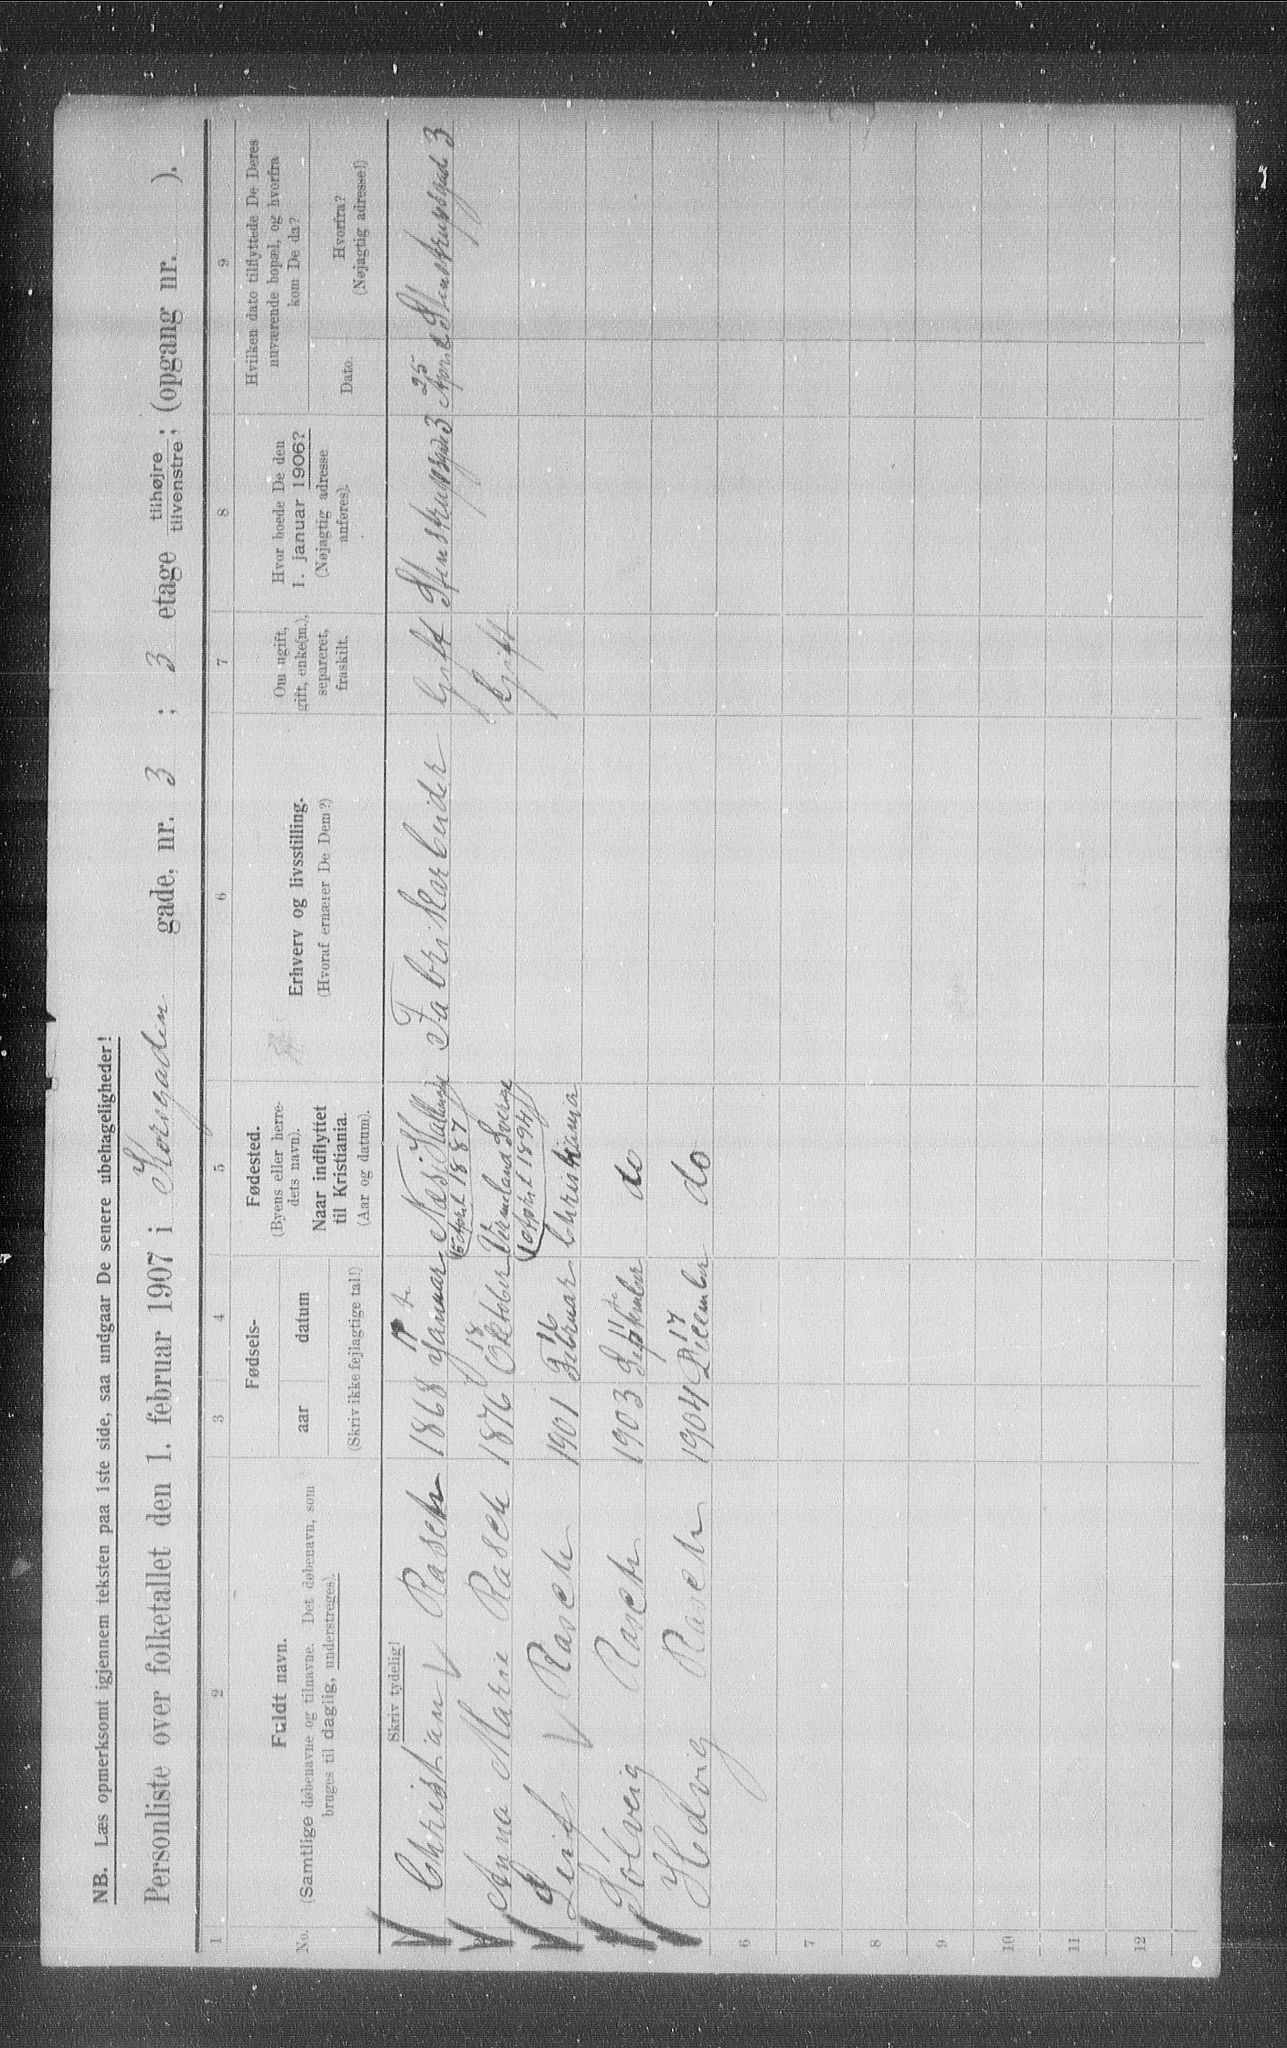 NB. Læs opmerksomt igjennem teksten paa 1ste side, saa undgaar De senere ubehageligheder!
Personliste over folketallet den 1. februar 1907 i Korsgaden gade, nr. 3 ; 3 etage tilhøjre tilvenstre ; (opgang nr. ).
1 2 3 4 5 6 7 8 9
No.
Fuldt navn.
(Samtlige døbenavne og tilnavne. Det døbenavn, som
bruges til daglig, understreges).
Fødsels-
aar datum
(Skriv ikke fejlagtige tal!)
Fødested.
(Byens eller herre-
dets navn).
Naar indflyttet
til Kristiania.
(Aar og datum).
Erhverv og livsstilling.
(Hvoraf ernærer De Dem?)
Om ugift,
gift, enke(m.),
separeret,
fraskilt.
Hvor boede De den
1. januar 1906?
(Nøjagtig adresse
anføres).
Hvilken dato tilflyttede De Deres
nuværende bopæl, og hvorfra
kom De da?
Dato.
Hvorfra?
(Nøjagtig adresse!)
Skriv tydelig!
Christian Rasch 1868 Januar Fabrikarbeider Gift Stenstrupsgade 3 25 April Stenstrupsgad 3
April 1887
Anna Marie Rasch 1876 18 Oktober Vermeland Sverige Gift
April 1894
Leif Rasch 1901 16 Februar Christiania
Solveig Rasch 1903 11 September do
Hedvig Rasch 1904 17 December do
6
7
8
9
10
11
12